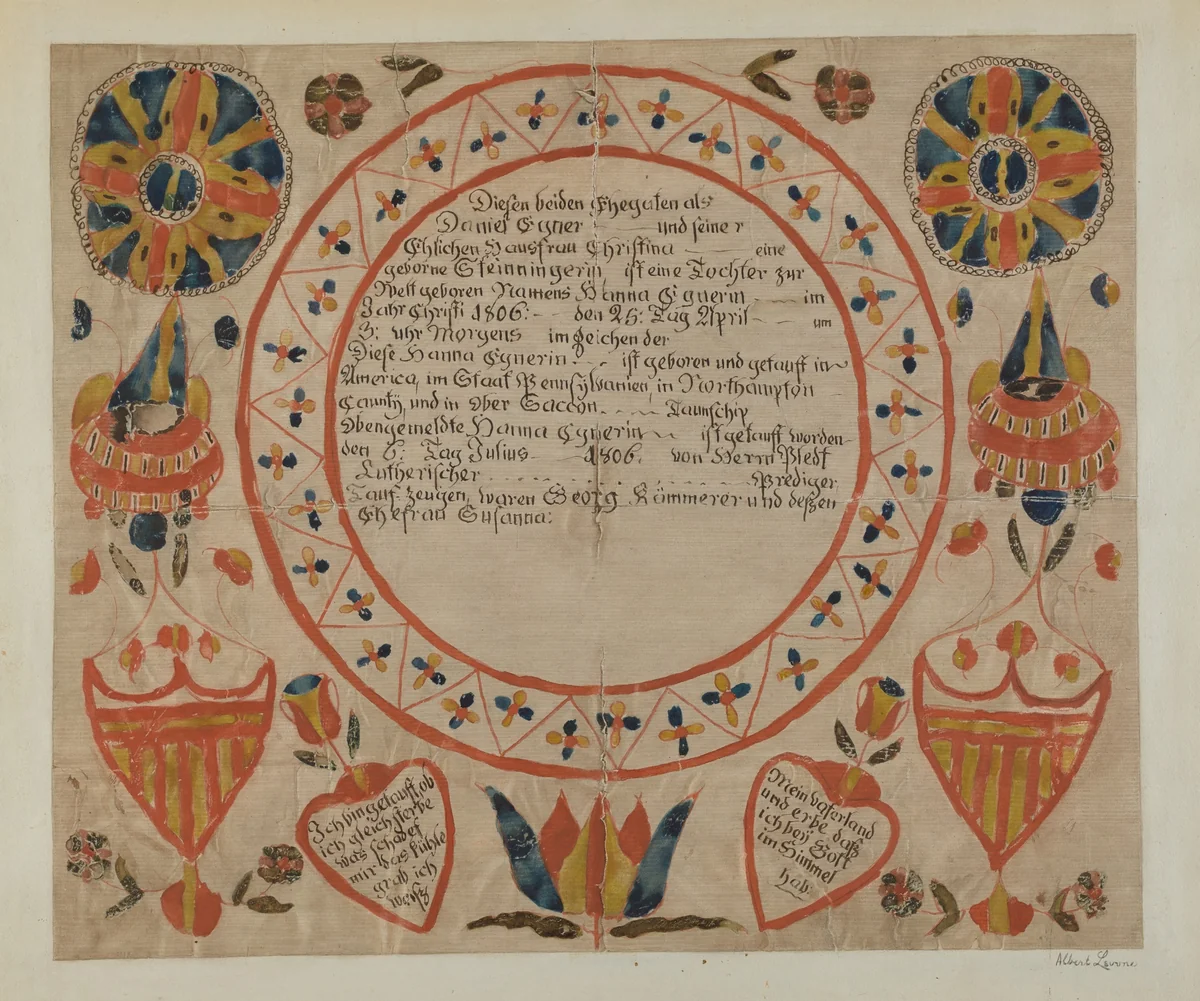 Diesen beiden Ehegaten als
Daniel Egner und seiner
Ehlichen Hausfrau Christina eine
geborne Steinningerin ist eine Tochter zur
Welt geboren Namens Hanna Egnerin im
Jahr Christi 1806: den 25: Tag April um
3: uhr Morgens im Zeichen der
Diese Hanna Egnerin ist geboren und getauft in
America, im Staat Pennsylvanien, in Northampton
Caunty, und in Ober Saccon Taunschip
Obengemeldte Hanna Egnerin ist getauft worden
den 6: Tag Julius 1806. von Herrn
Lutherischer Prediger
Tauf-Zeugen, waren Georg Kämmerer und deßen
Ehefrau Susanna:
Ich bin getauft, ob
ich gleich sterbe
was schadet
mir das kühle
grab ich
weiß
Mein vaterland
und erbe daß
ich bey Gott
im Himmel
hab.
Albert Levone